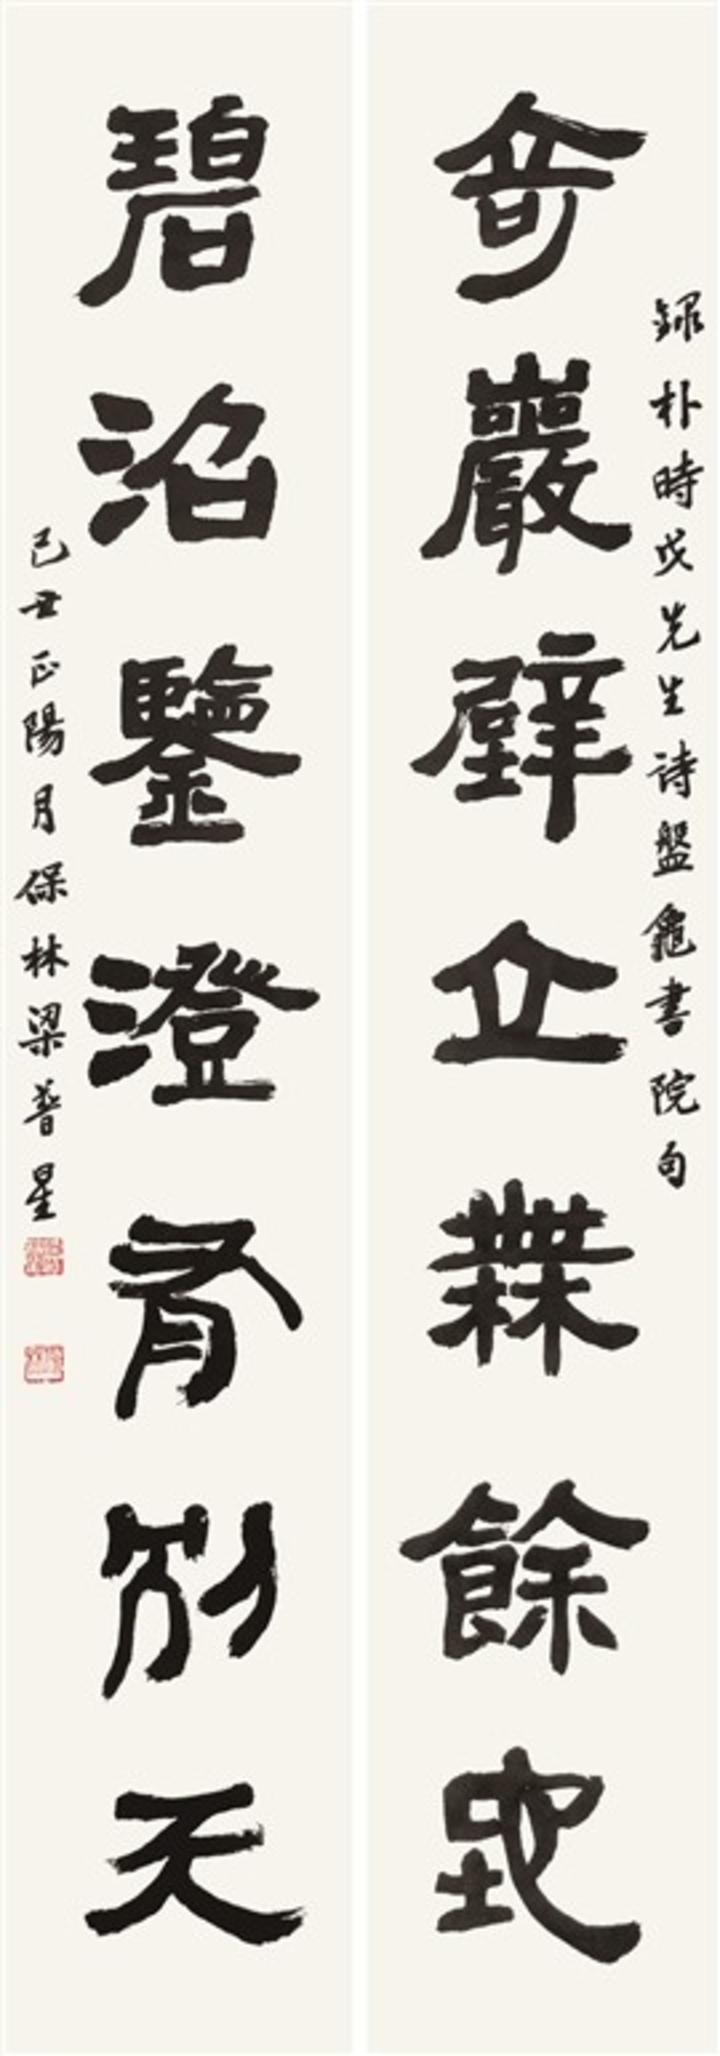 錄朴時戊先生詩盤龜書院句
奇巖壁立無餘地
碧沼鑒澄有別天
己丑正陽月保林梁普星